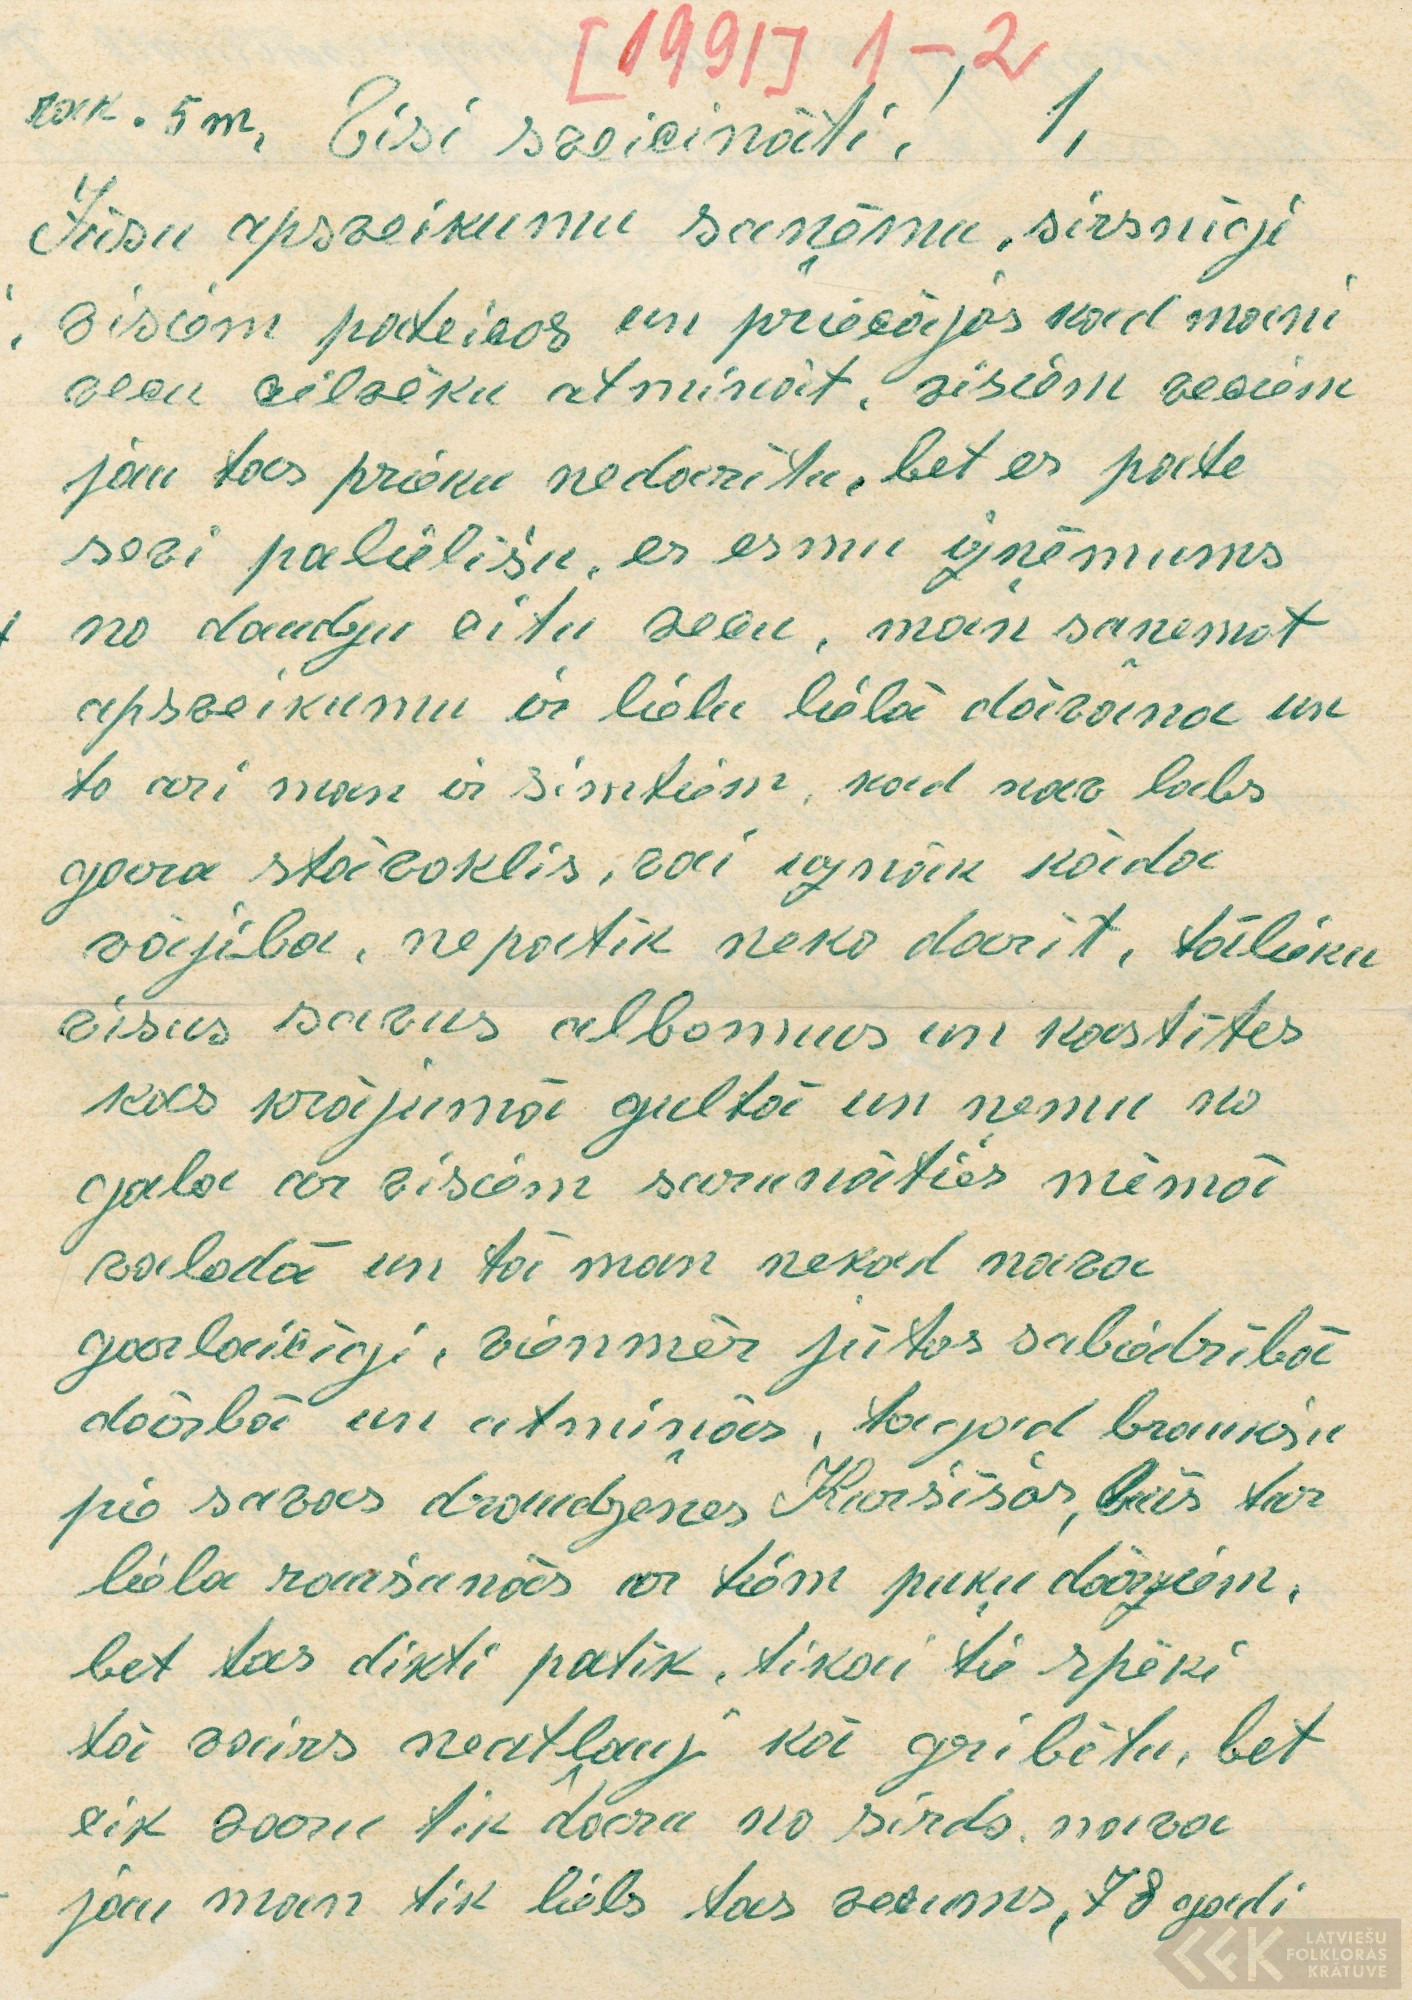 [1991] 1-2
rak. 5 m, Visi sveicināti! 1,
Jūsu apsveikumu saņēmu, sirsnīgi
visiem pateicos un priecājos kad mani
vecu cilvēku atmināt, visiem veciem
jau tas prieku nedarītu, bet es pate
sevi palielīšu, es esmu izņēmums
no daudzu citu vecu, man saņemot
apsveikumu ir lielu lielā dāvana un
to ari man ir simtiem, kad nav labs
gara stāvoklis, vai uznāk kāda
vājība, nepatik neko darīt, tālieku
visus savus albomus un kastītes
kas krājumā gultā un ņemu no
gala ar visiem sarunāties mēmā
valodā un tā man nekad nava
garlaicīgi, vienmēr jūtos sabiedrībā
dārbā un atmiņās, tagad braukšu
pie savas draudzenes Kursīšos, būs tur
liela raušanās ar tiem puķu dārziem,
bet tas dikti patīk, tikai tie spēki
tā vairs neatļauj kā gribētu, bet
cik varu tik daru no sirds. nava
jau man tik liels tas vecums, 78 gadi
LATVIEŠU
FOLKLORAS
KRĀTUVE